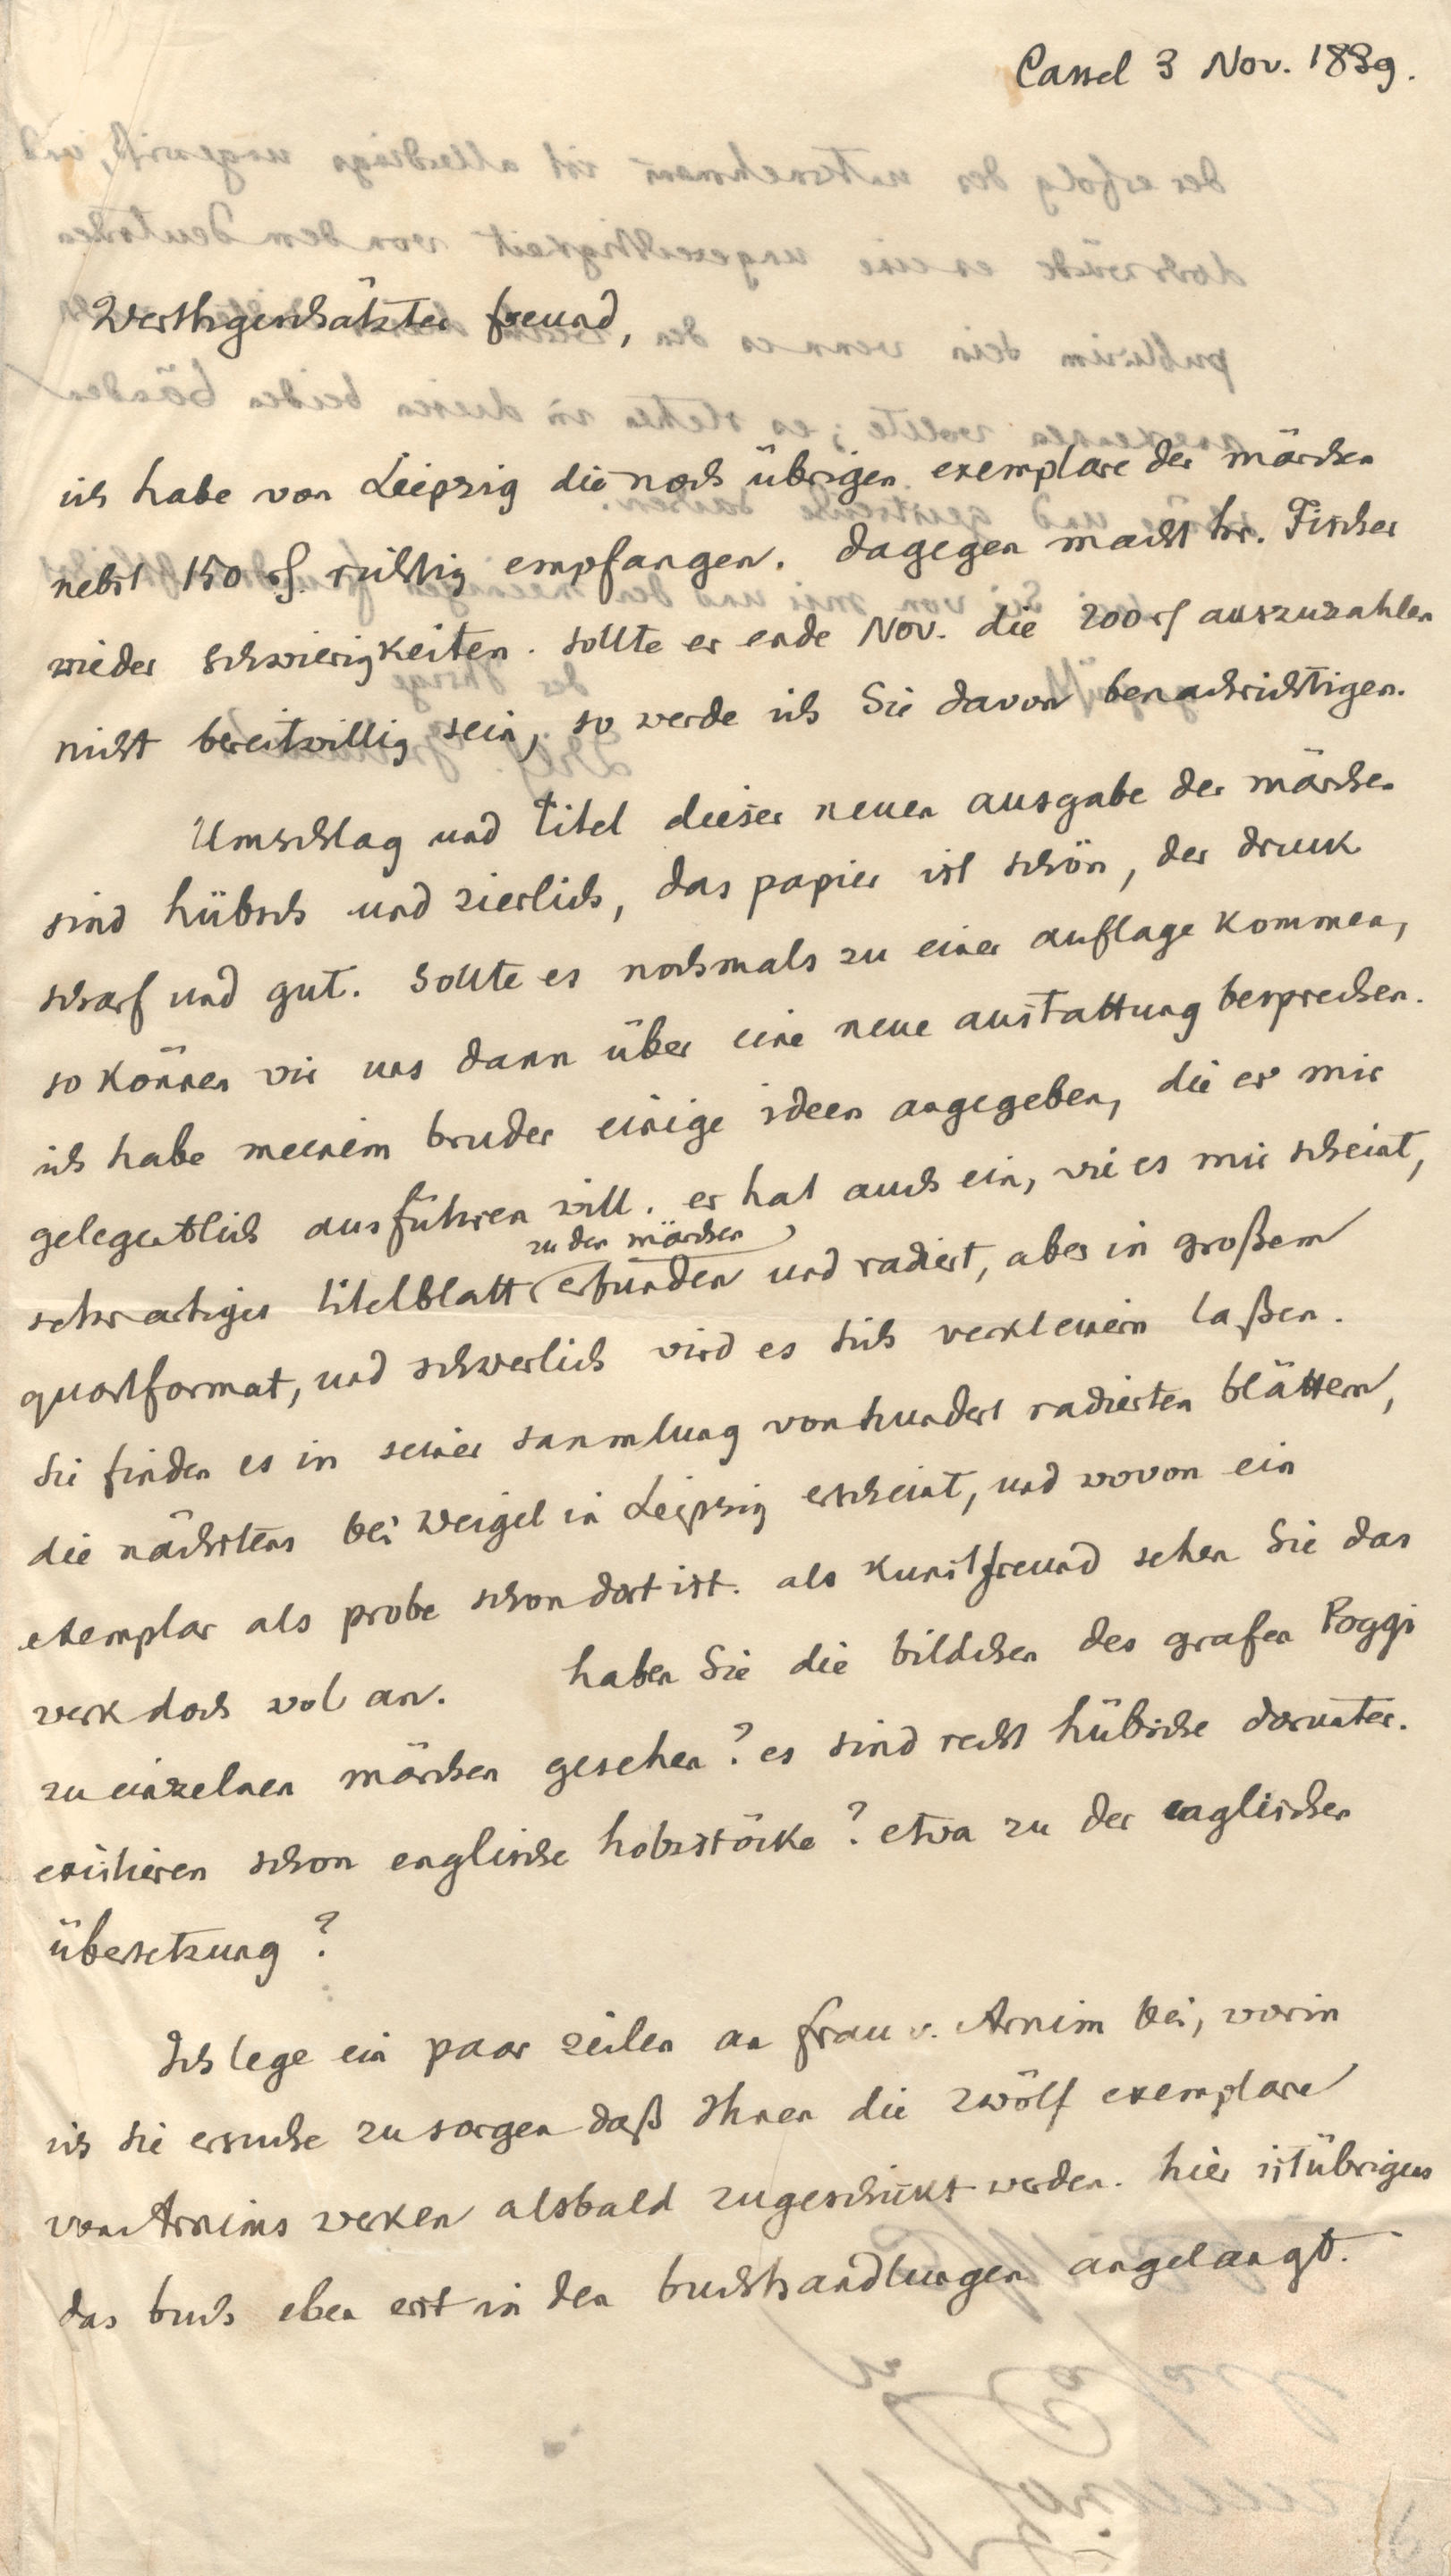 Cassel 3 Nov. 1839.
Werthgeschätzter freund,
ich habe von Leipzig die noch übrigen exemplare der märchen
nebst 150 rf. richtig empfangen. dagegen macht hr. Fischer
wieder schwierigkeiten. sollte er ende Nov. die 200 rf auszuzahlen
nicht bereitwillig sein, so werde ich Sie davon benachrichtigen.
Umschlag und titel dieser neuen ausgabe der märchen
sind hübsch und zierlich, das papier ist schön, der druck
scharf und gut. sollte es nochmals zu einer auflage kommen,
so können wir uns dann über eine neue austattung besprechen.
ich habe meinem bruder einige ideen angegeben, die er mir
gelegentlich ausführen will. er hat auch ein, wie es mir scheint,
sehr artiges titelblatt zu den märchen erfunden und radiert, aber in großem
quartformat, und schwerlich wird es sich verkleinern laßen.
Sie finden es in seiner sammlung von hundert radierten blättern,
die nächstens bei Weigel in Leipzig erscheint, und wovon ein
exemplar als probe schon dort ist. als kunstfreund sehen Sie das
werk doch wol an. haben Sie die bildchen des grafen Poggi
zu einzelnen märchen gesehen? es sind recht hübsche darunter.
existieren schon englische holzstöcke? etwa zu der englischen
übersetzung?
Ich lege ein paar zeilen an frau v. Arnim bei, worin
ich sie ersuche zu sorgen daß Ihnen die zwölf exemplare
von Arnims werken alsbald zugeschickt werden. hier ist übrigens
das buch eben erst in den buchhandlungen angelangt.